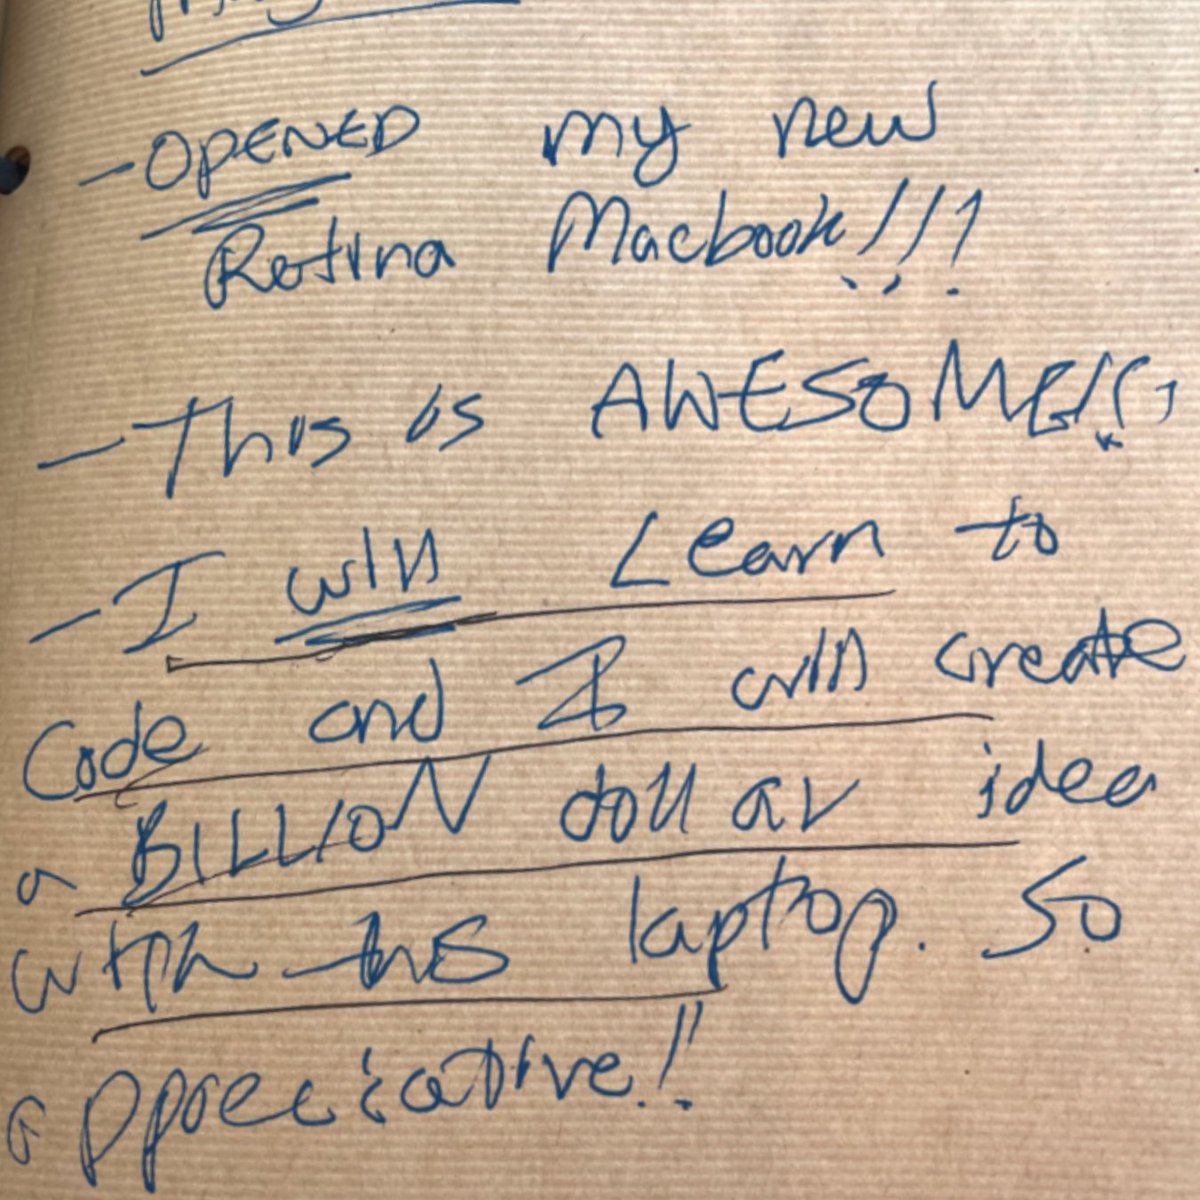 - OPENED my new
Retina Macbook!!!
- This is AWESOME!!!
- I will Learn to
Code and I will create
a BILLION dollar idea
with this laptop. So
appreciative!!